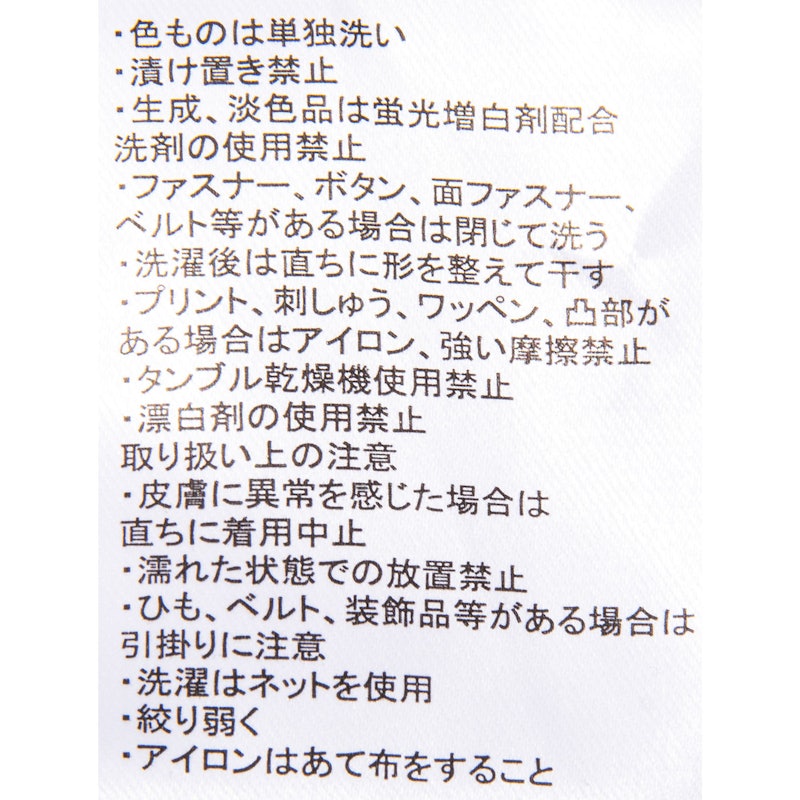 ・色ものは単独洗い
・漬け置き禁止
・生成、淡色品は蛍光増白剤配合
洗剤の使用禁止
・ファスナー、ボタン、面ファスナー、
ベルト等がある場合は閉じて洗う
・洗濯後は直ちに形を整えて干す
・プリント、刺しゅう、ワッペン、凸部が
ある場合はアイロン、強い摩擦禁止
・タンブル乾燥機使用禁止
・漂白剤の使用禁止
取り扱い上の注意
・皮膚に異常を感じた場合は
直ちに着用中止
・濡れた状態での放置禁止
・ひも、ベルト、装飾品等がある場合は
引掛りに注意
・洗濯はネットを使用
・絞り弱く
・アイロンはあて布をすること